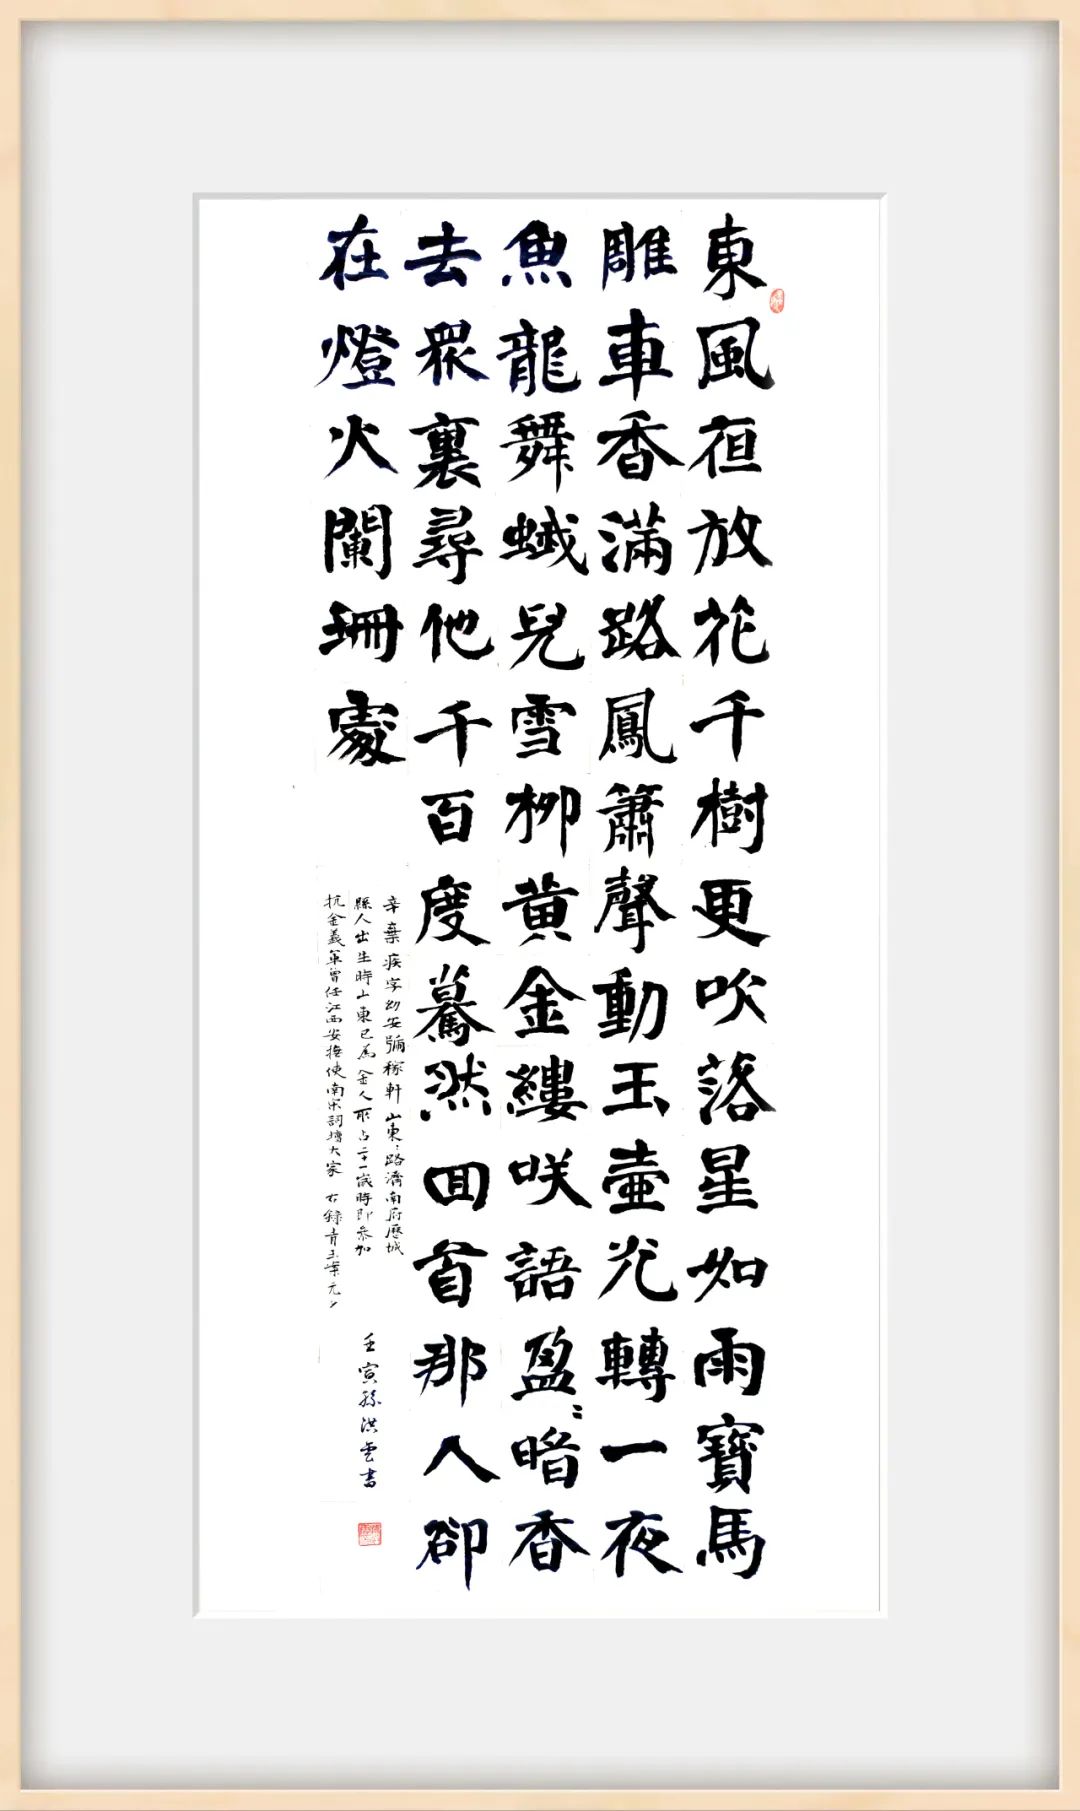 東風亱放花千樹更吹落星如雨寶馬
雕車香滿路鳳簫聲動玉壺光轉一夜
魚龍舞蛾兒雪柳黄金縷咲語盈〻暗香
去眾裏尋他千百度驀然回首那人卻
在燈火闌珊處
辛棄疾字幼安號稼軒山東〻路濟南府歷城
縣人出生時山東已為金人所占二十一歲時即參加
抗金義軍曾任江西安撫使南宋詞壇大家 右錄青玉案元夕
壬寅孫洪雲書